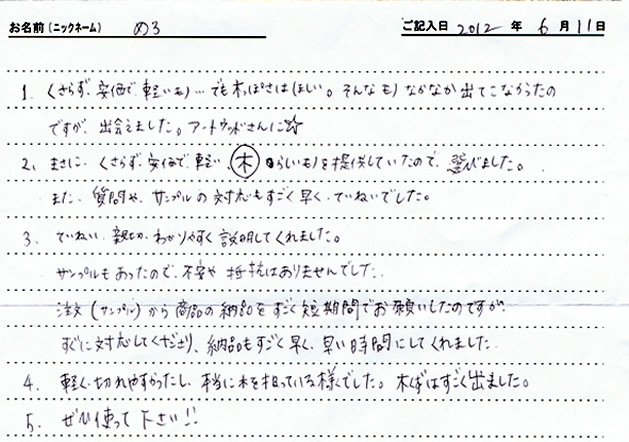 お名前(ニックネーム) めろ ご記入日 2012 年 6 月 11 日
1. くさらず、安価で、軽いもの…でも木っぽさはほしい。そんなもの なかなか出てこなかったの
ですが、出会えました。アートウッドさんに☆
2. まさに、くさらず、安価で、軽い、木 らしいものを提供していたので、選びました。
また、質問や、サンプルの対応もすごく早く、ていねいでした。
3. ていねい、親切、わかりやすく説明してくれました。
サンプルもあったので、不安や抵抗はありませんでした。
注文(サンプル)から商品の納品をすごく短期間でお願いしたのですが、
すぐに対応してくださり、納品もすごく早く、早い時間にしてくれました。
4. 軽く、切れやすかったし、本当に木を切っている様でした。木くずはすごく出ました。
5. ぜひ使って下さい!!